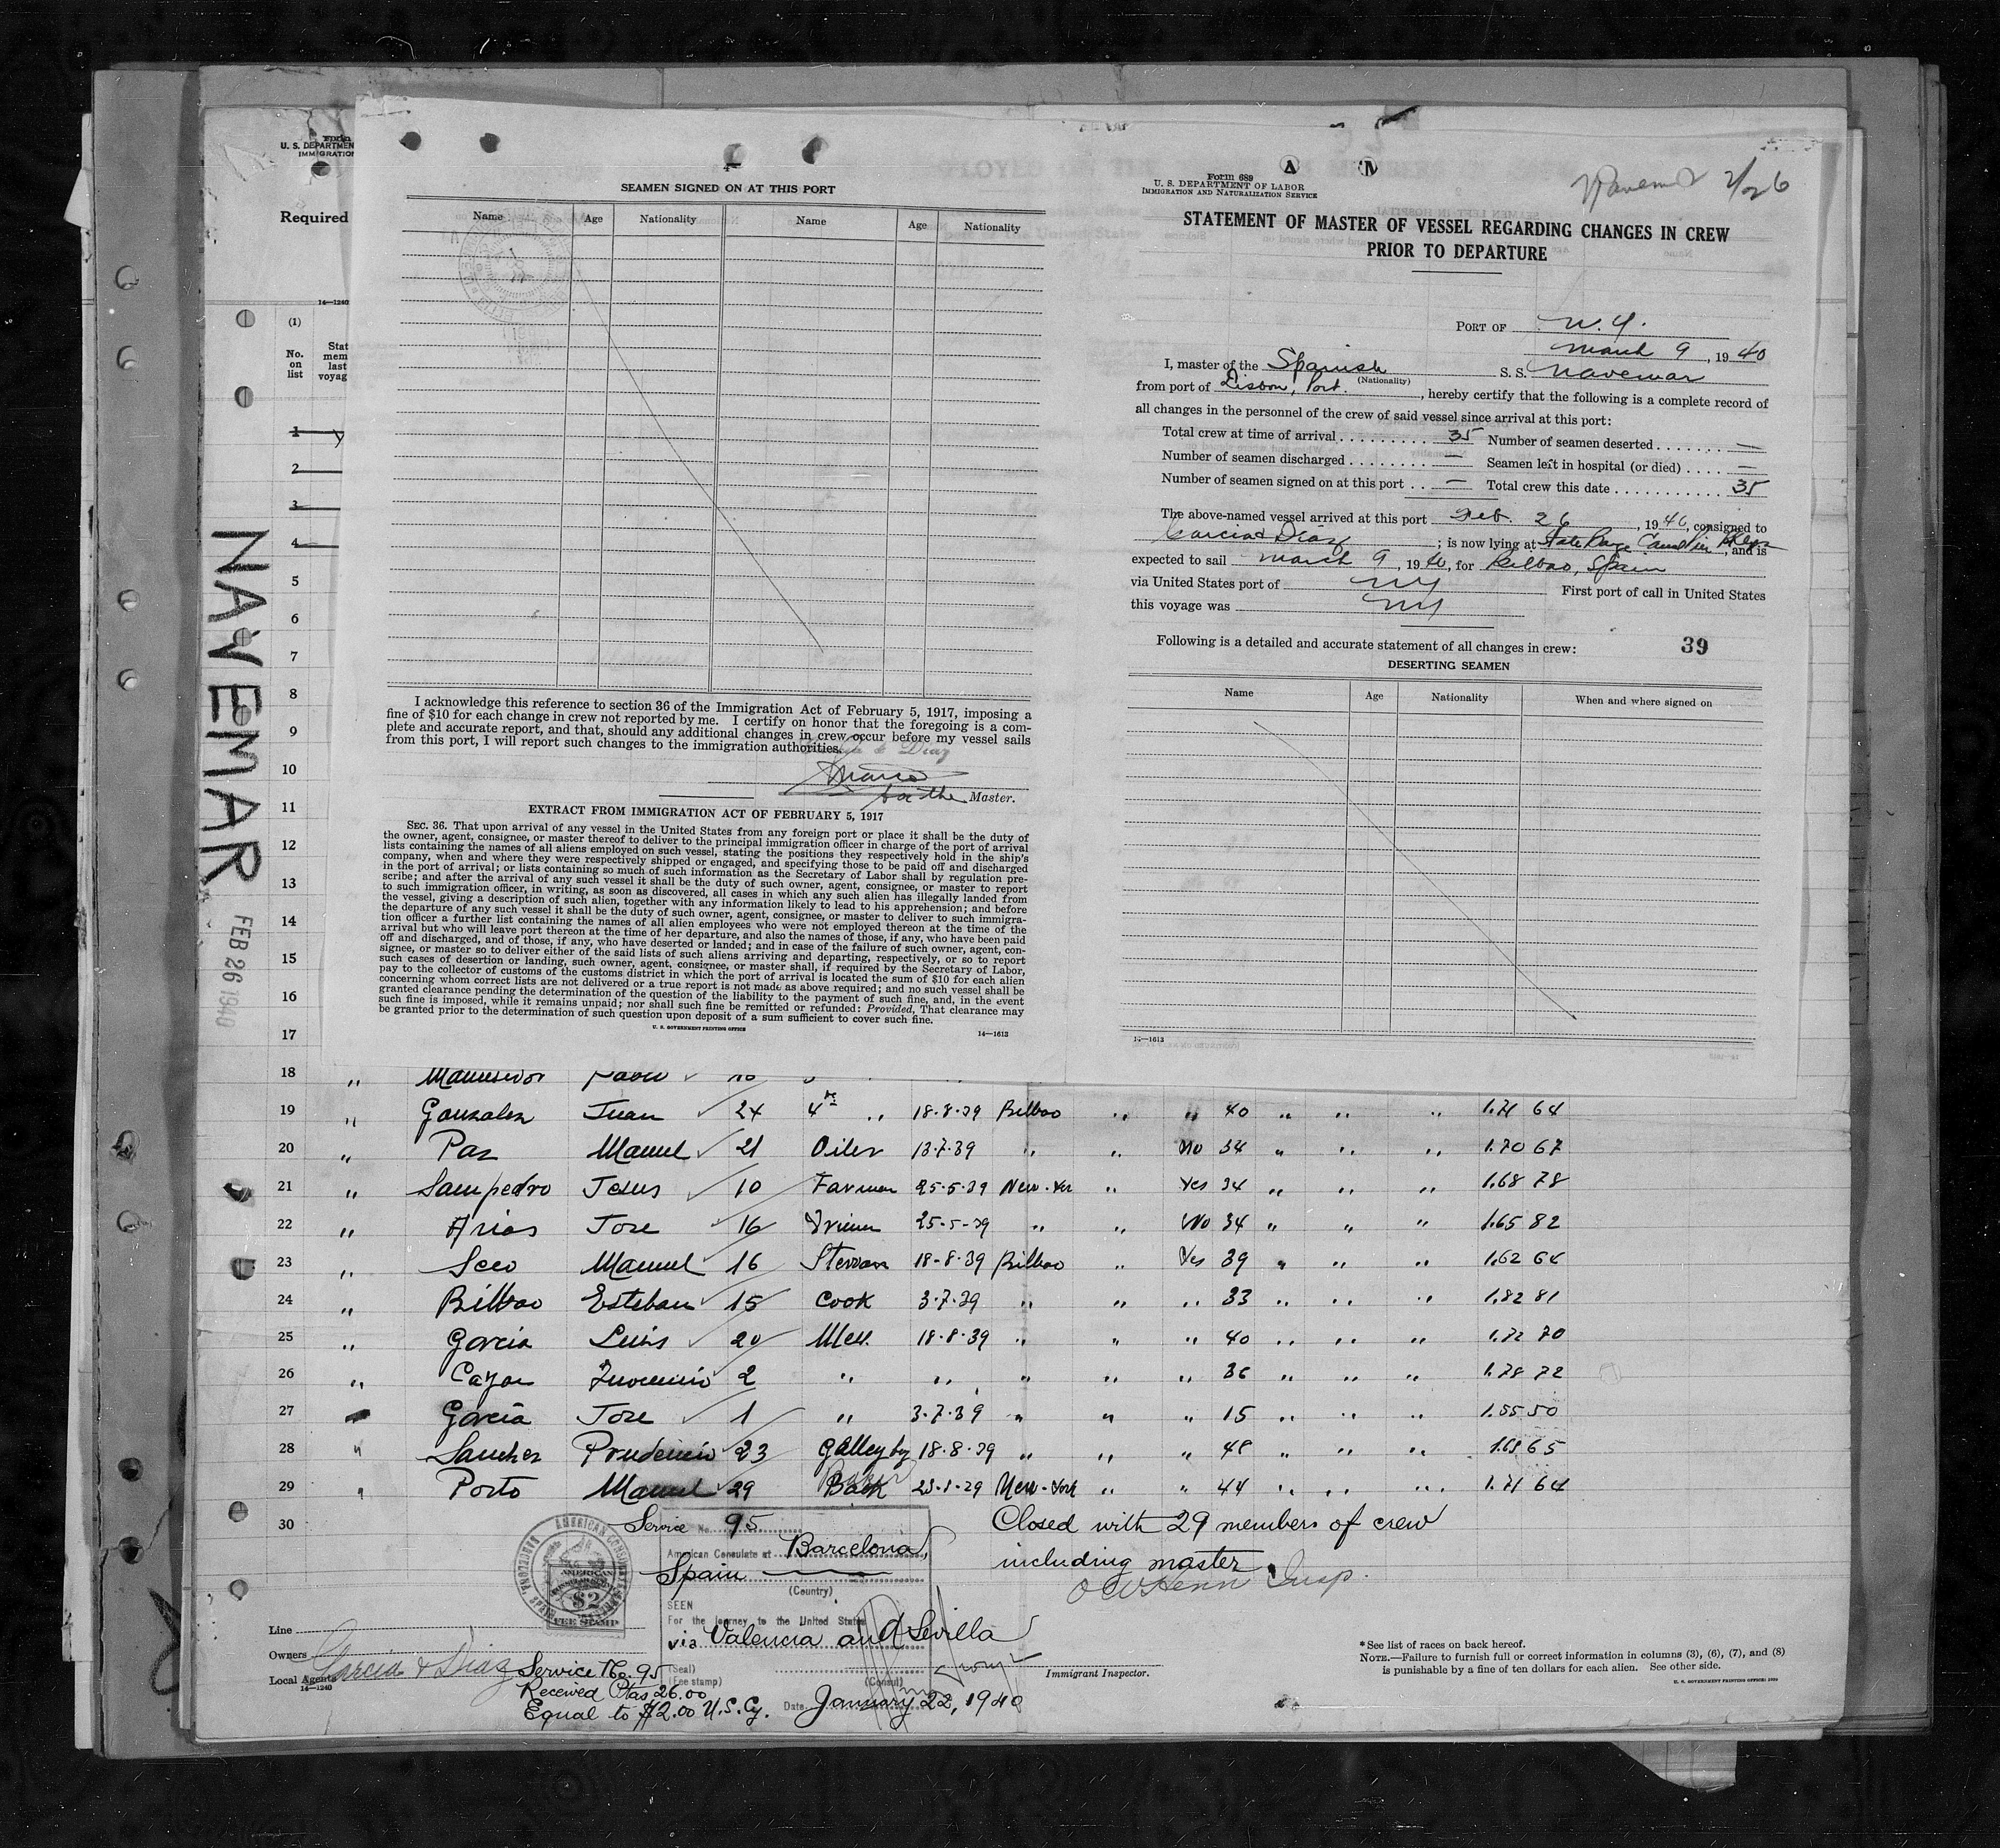 Form
U. S. DEPARTMEN
IMMIGRATION
Required
14—1240
(1)
No.
on
list
Stat
mem
last
voyag
1
2
3
4
5
6
7
8
9
10
11
12
13
14
15
16
17
NAVEMAR
FEB 26 1940
SEAMEN SIGNED ON AT THIS PORT
Name Age Nationality Name Age Nationality
I acknowledge this reference to section 36 of the Immigration Act of February 5, 1917, imposing a
fine of $10 for each change in crew not reported by me. I certify on honor that the foregoing is a com-
plete and accurate report, and that, should any additional changes in crew occur before my vessel sails
from this port, I will report such changes to the immigration authorities.
Garcia & Diaz
for the Master.
EXTRACT FROM IMMIGRATION ACT OF FEBRUARY 5, 1917
SEC. 36. That upon arrival of any vessel in the United States from any foreign port or place it shall be the duty of
the owner, agent, consignee, or master thereof to deliver to the principal immigration officer in charge of the port of arrival
lists containing the names of all aliens employed on such vessel, stating the positions they respectively hold in the ship's
company, when and where they were respectively shipped or engaged, and specifying those to be paid off and discharged
in the port of arrival; or lists containing so much of such information as the Secretary of Labor shall by regulation pre-
scribe; and after the arrival of any such vessel it shall be the duty of such owner, agent, consignee, or master to report
to such immigration officer, in writing, as soon as discovered, all cases in which any such alien has illegally landed from
the vessel, giving a description of such alien, together with any information likely to lead to his apprehension; and before
the departure of any such vessel it shall be the duty of such owner, agent, consignee, or master to deliver to such immigra-
tion officer a further list containing the names of all alien employees who were not employed thereon at the time of the
arrival but who will leave port thereon at the time of her departure, and also the names of those, if any, who have been paid
off and discharged, and of those, if any, who have deserted or landed; and in case of the failure of such owner, agent, con-
signee, or master so to deliver either of the said lists of such aliens arriving and departing, respectively, or so to report
such cases of desertion or landing, such owner, agent, consignee, or master shall, if required by the Secretary of Labor,
pay to the collector of customs of the customs district in which the port of arrival is located the sum of $10 for each alien
concerning whom correct lists are not delivered or a true report is not made as above required; and no such vessel shall be
granted clearance pending the determination of the question of the liability to the payment of such fine, and, in the event
such fine is imposed, while it remains unpaid; nor shall such fine be remitted or refunded: Provided, That clearance may
be granted prior to the determination of such question upon deposit of a sum sufficient to cover such fine.
U. S. GOVERNMENT PRINTING OFFICE 14—1613
A N
Form 689
U. S. DEPARTMENT OF LABOR
IMMIGRATION AND NATURALIZATION SERVICE
Navemar 2/26
STATEMENT OF MASTER OF VESSEL REGARDING CHANGES IN CREW
PRIOR TO DEPARTURE
PORT OF N.Y.
March 9, 1940
I, master of the Spanish S. S. Navemar
(Nationality)
from port of Lisbon, Port., hereby certify that the following is a complete record of
all changes in the personnel of the crew of said vessel since arrival at this port:
Total crew at time of arrival 35 Number of seamen deserted —
Number of seamen discharged — Seamen left in hospital (or died) —
Number of seamen signed on at this port — Total crew this date 35
The above-named vessel arrived at this port Feb. 26, 1940, consigned to
Garcia & Diaz; is now lying at Bklyn, and is
expected to sail March 9, 1940, for Bilbao, Spain
via United States port of NY First port of call in United States
this voyage was NY
Following is a detailed and accurate statement of all changes in crew: 39
DESERTING SEAMEN
Name Age Nationality When and where signed on
14—1613
18 "
19 " Gonzalez Juan 24 4th " 18-8-39 Bilbao " " 40 " " " 1.71 64
20 " Paz Manuel 21 Oiler 13-7-39 " " No 34 " " " 1.70 67
21 " Sampedro Jesus 10 Farman 25-5-39 New-Yor " Yes 34 " " " 1.68 78
22 " Arias Jose 16 25-5-39 " " No 34 " " " 1.65 82
23 " Seco Manuel 16 18-8-39 Bilbao " Yes 39 " " " 1.62 64
24 " Bilbao Esteban 15 Cook 3-7-39 " " " 33 " " " 1.82 81
25 " Garcia Luis 20 Mess. 18-8-39 " " " 40 " " " 1.72 70
26 " 2 " " " " " 36 " " " 1.78 72
27 Garcia Jose 1 " 3-7-39 " " " 15 " " " 1.55 50
28 " Sanchez Prudencio 23 Galley by 18-8-39 " " " 48 " " " 1.68 65
29 " Porto Manuel 29 25-5-39 New-York " " 44 " " " 1.71 64
30
Service No. 95
American Consulate at Barcelona,
Spain
(Country)
SEEN
For the journey to the United States
via Valencia and Sevilla
(Seal)
(Fee stamp)
(Consul)
Date January 22, 1940
AMERICAN CONSULATE BARCELONA, SPAIN
AMERICAN
$2
FEE STAMP
Closed with 29 members of crew
including master.
Insp.
Immigrant Inspector.
Line
Owners
Local Agents Garcia & Diaz
14—1240
Service No. 95
Received Ptas 26.00
Equal to $2.00 U.S.Cy.
* See list of races on back hereof.
NOTE.—Failure to furnish full or correct information in columns (3), (6), (7), and (8)
is punishable by a fine of ten dollars for each alien. See other side.
U. S. GOVERNMENT PRINTING OFFICE: 1939